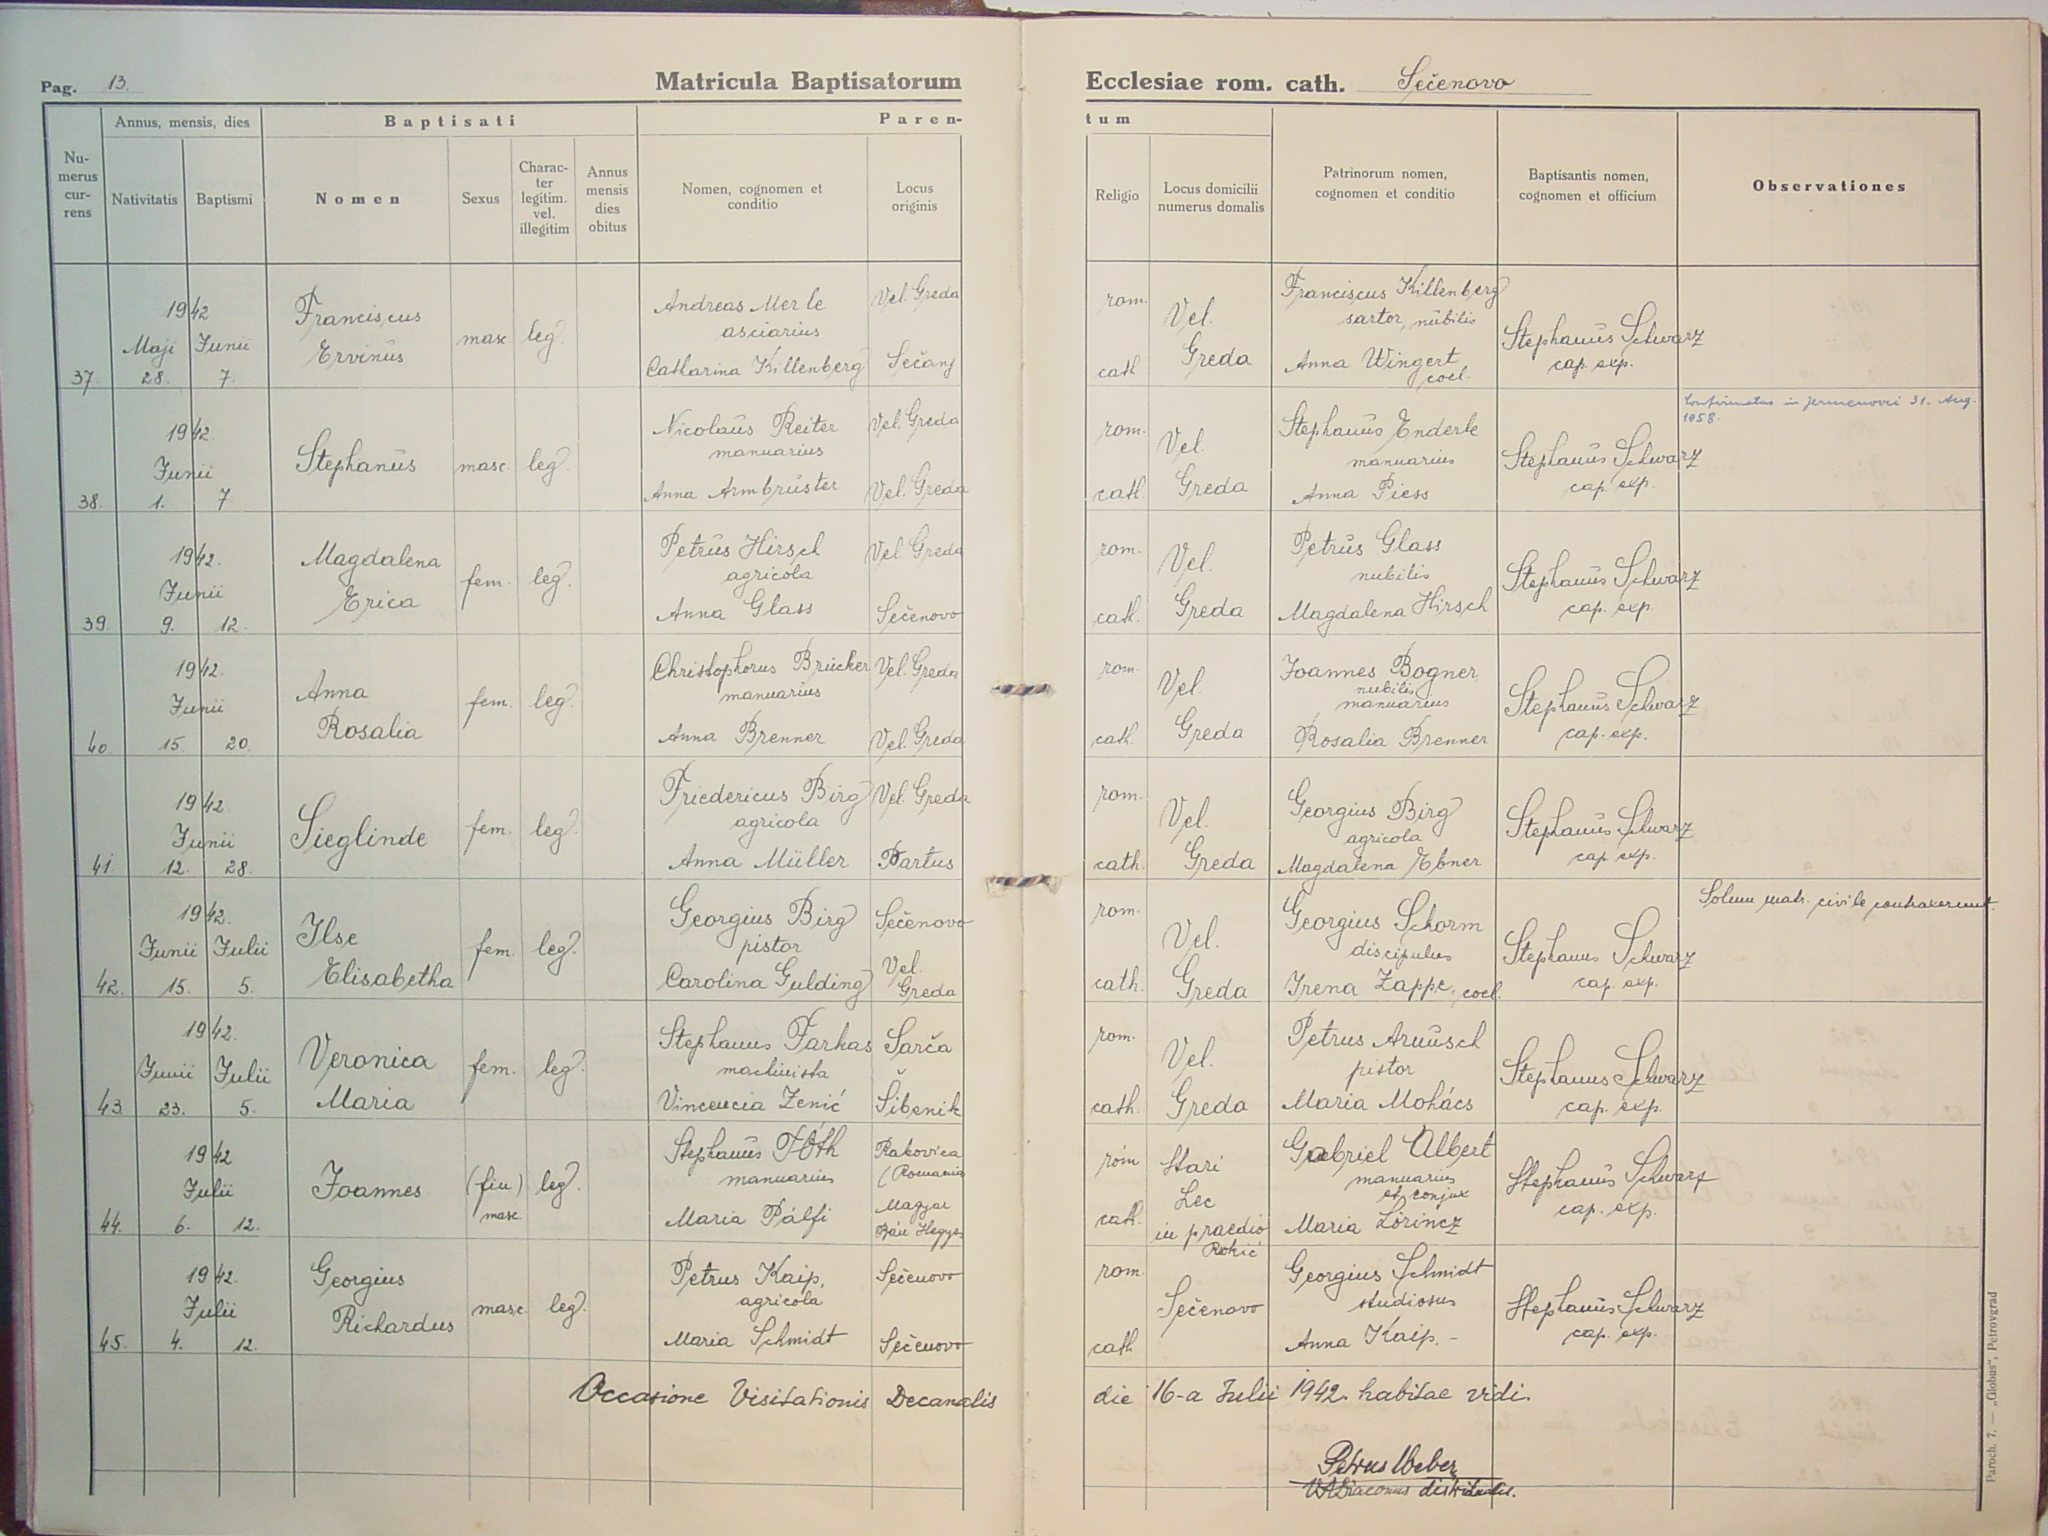 Pag. 13.
Matricula Baptisatorum
Ecclesiae rom. cath. Sečenovo
Numerus currens
Annus, mensis, dies
Nativitatis
Baptismi
Baptisati
Nomen
Sexus
Character legitim. vel. illegitim
Annus mensis dies obitus
Paren-
tum
Nomen, cognomen et conditio
Locus originis
Religio
Locus domicilii numerus domalis
Patrinorum nomen, cognomen et conditio
Baptisantis nomen, cognomen et officium
Observationes
37. 1942 Maji 28. Junii 7.
Franciscus Ervinus
masc. leg.
Andreas Merle asciarius Vel. Greda
Catharina Killenberg Sečanj
rom. cath. Vel. Greda
Franciscus Killenberg sartor, nubilis
Anna Wingert coel.
Stephanus Schwarz cap. exp.
38. 1942. Junii 1. 7.
Stephanus
masc. leg.
Nicolaus Reiter manuarius Vel. Greda
Anna Armbruster Vel. Greda
rom. cath. Vel. Greda
Stephanus Enderle manuarius
Anna Piess
Stephanus Schwarz cap. exp.
Confirmatus in Jermenovci 31. Aug. 1958.
39. 1942. Junii 9. 12.
Magdalena Erica
fem. leg.
Petrus Hirsch agricola Vel. Greda
Anna Glass Sečenovo
rom. cath. Vel. Greda
Petrus Glass nubilis
Magdalena Hirsch
Stephanus Schwarz cap. exp.
40. 1942. Junii 15. 20.
Anna Rosalia
fem. leg.
Christophorus Brücker manuarius Vel. Greda
Anna Brenner Vel. Greda
rom. cath. Vel. Greda
Joannes Bogner nubilis manuarius
Rosalia Brenner
Stephanus Schwarz cap. exp.
41. 1942. Junii 12. 28.
Sieglinde
fem. leg.
Friedericus Birg agricola Vel. Greda
Anna Müller Bartus
rom. cath. Vel. Greda
Georgius Birg agricola
Magdalena Ebner
Stephanus Schwarz cap exp.
42. 1942. Junii 15. Julii 5.
Ilse Elisabetha
fem. leg.
Georgius Birg pistor Sečenovo
Carolina Gulding Vel. Greda
rom. cath. Vel. Greda
Georgius Schorm discipulus
Irena Zappe, coel.
Stephanus Schwarz cap. exp.
Solum matr. civile contraxerunt.
43. 1942. Junii 23. Julii 5.
Veronica Maria
fem. leg.
Stephanus Farkas machinista Sarča
Vincencia Zenić Šibenik
rom. cath. Vel. Greda
Petrus pistor
Maria Mohács
Stephanus Schwarz cap. exp.
44. 1942 Julii 6. 12.
Joannes
(fiu) masc. leg.
Stephanus Tóth manuarius Rakovica (Romania
Maria Pálfi Magyar Hegyes
rom cath. Stari Lec in praedio Rokić
Gabriel Albert manuarius et conjux
Maria Lőrincz
Stephanus Schwarz cap. exp.
45. 1942. Julii 4. 12.
Georgius Richardus
masc. leg.
Petrus Kaip, agricola Sečenovo
Maria Schmidt Sečenovo
rom. cath Sečenovo
Georgius Schmidt studiosus
Anna Kaip. -
Stephanus Schwarz cap. exp.
Occasione Visitationis Decanalis die 16-a Julii 1942. habitae vidi.
Petrus Weber
districtualis.
Paroch. 7. — „Globus“, Petrovgrad